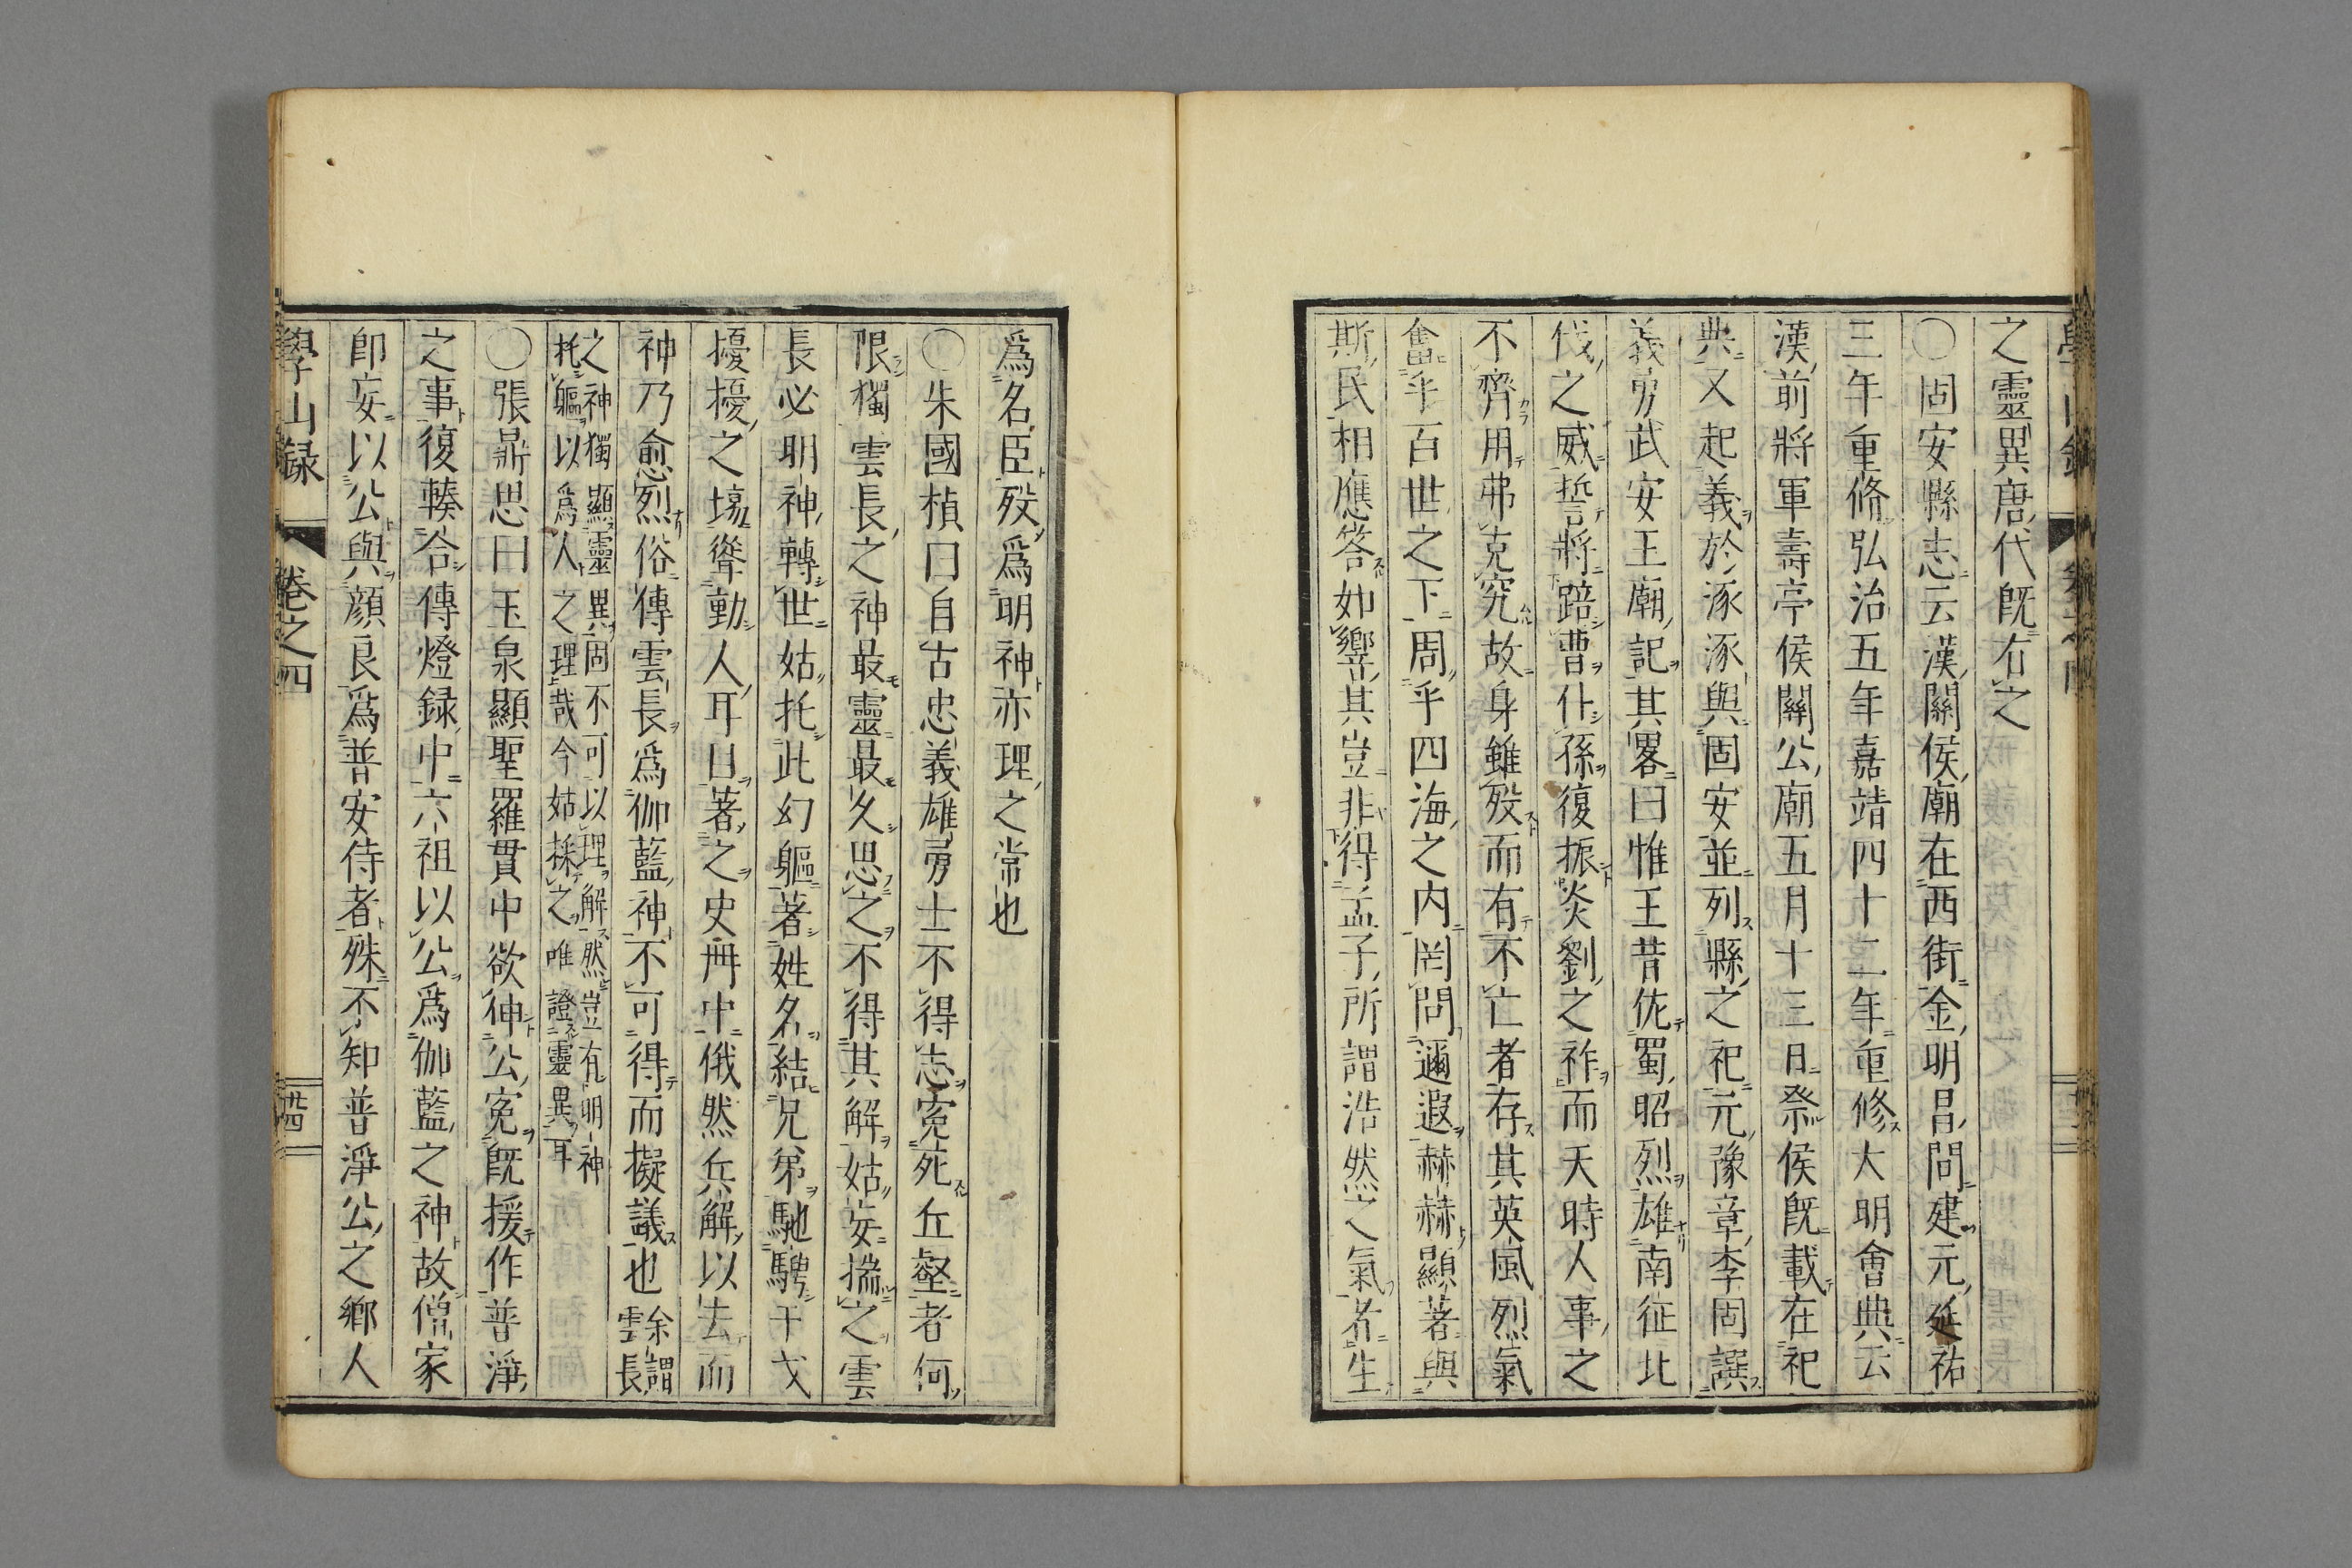 之靈異唐代既右之
〇固安縣志云漢關侯廟在西街金明昌間建元延祐
三年重脩弘治五年嘉靖四十二年重修大明會典云
漢前將軍壽亭侯關公廟五月十三日祭侯既載在祀
典又起義於涿涿與固安並列縣之祀元豫章李固譔
義勇武安王廟記其畧曰惟王昔佐蜀昭烈雄南征北
伐之威誓將踣曹仆孫復振炎劉之祚而天時人事之
不齊用弗克究故身雖歿而有不亡者存其英風烈氣
奮乎百世之下周乎四海之内罔間邇遐赫赫顯著與
斯民相應答如響其豈非得孟子所謂浩然之氣者生
爲名臣歿爲明神亦理之常也
〇朱國楨曰自古忠義雄勇士不得志寃死丘壑者何
限獨雲長之神最靈最久思之不得其解姑妄揣之雲
長必明神轉世姑托此幻軀著姓名結兄弟馳騁干戈
擾擾之塲聳動人耳目著之史冊中俄然兵解以去而
神乃愈烈俗傳雲長爲伽藍神不可得而擬議也余謂雲長
之神獨顯靈異固不可以理解然豈有明神
托軀以爲人之理哉今姑採之唯證靈異耳
〇張鼎思曰玉泉顯聖羅貫中欲伸公寃既援作普淨
之事復輳合傳燈録中六祖以公爲伽藍之神故僧家
即妄以公與顔良爲普安侍者殊不知普淨公之鄉人
學山録 卷之四 廿四